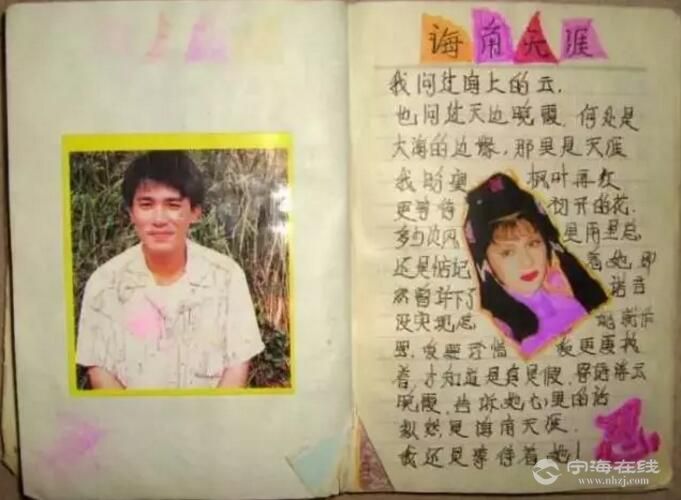 海角天涯
我问过海上的云,
也问过天边晚霞,何处是
大海的边缘,那里是天涯
我盼望 枫叶再红
更等待 初开的花.
多少次风 里雨里总
还是惦记 着她,即
然曾许下了 诺言
没实现怎
爱要珍惜 爱更要执
着,才知道是真是假,寄语海云
晚霞,告诉她心里的话
纵然是海角天涯.
我还是等待着她!
宁海在线
www.nhzj.com